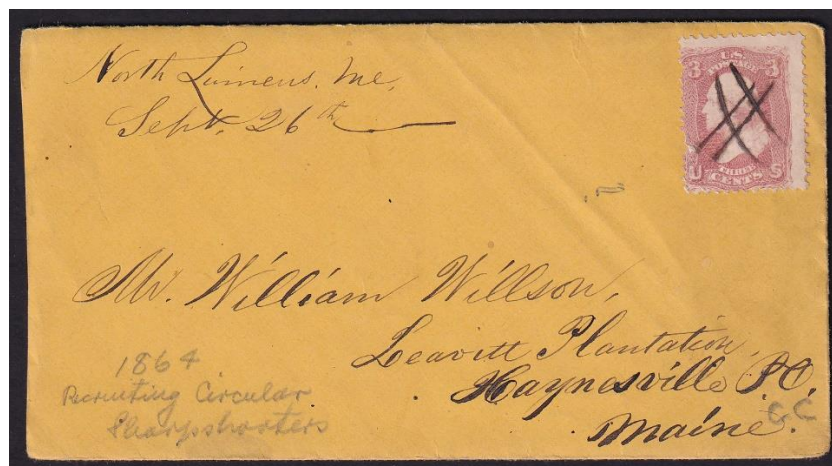 North Limerus. Me,
Sept. 26th
3 U.S. POSTAGE 3
U THREE CENTS S
Mr. William Willson,
Leavitt Plantation,
Haynesville P.O.
Maine.
1864
Recruiting Circular
Sharpshooters
GC